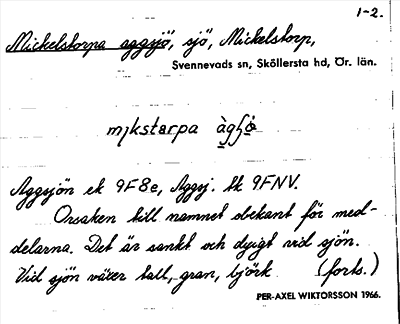 1-2.
Mickelstorpa aggsjö, sjö, Mickelstorp,
Svennevads sn, Sköllersta hd, Ör. län.
Aggsjön ek 9F8e, Aggsj. tk 9FNV.
Orsaken till namnet obekant för med-
delarna. Det är sankt och dyigt vid sjön.
Vid sjön växer tall, gran, björk. (forts.)
PER-AXEL WIKTORSSON 1966.